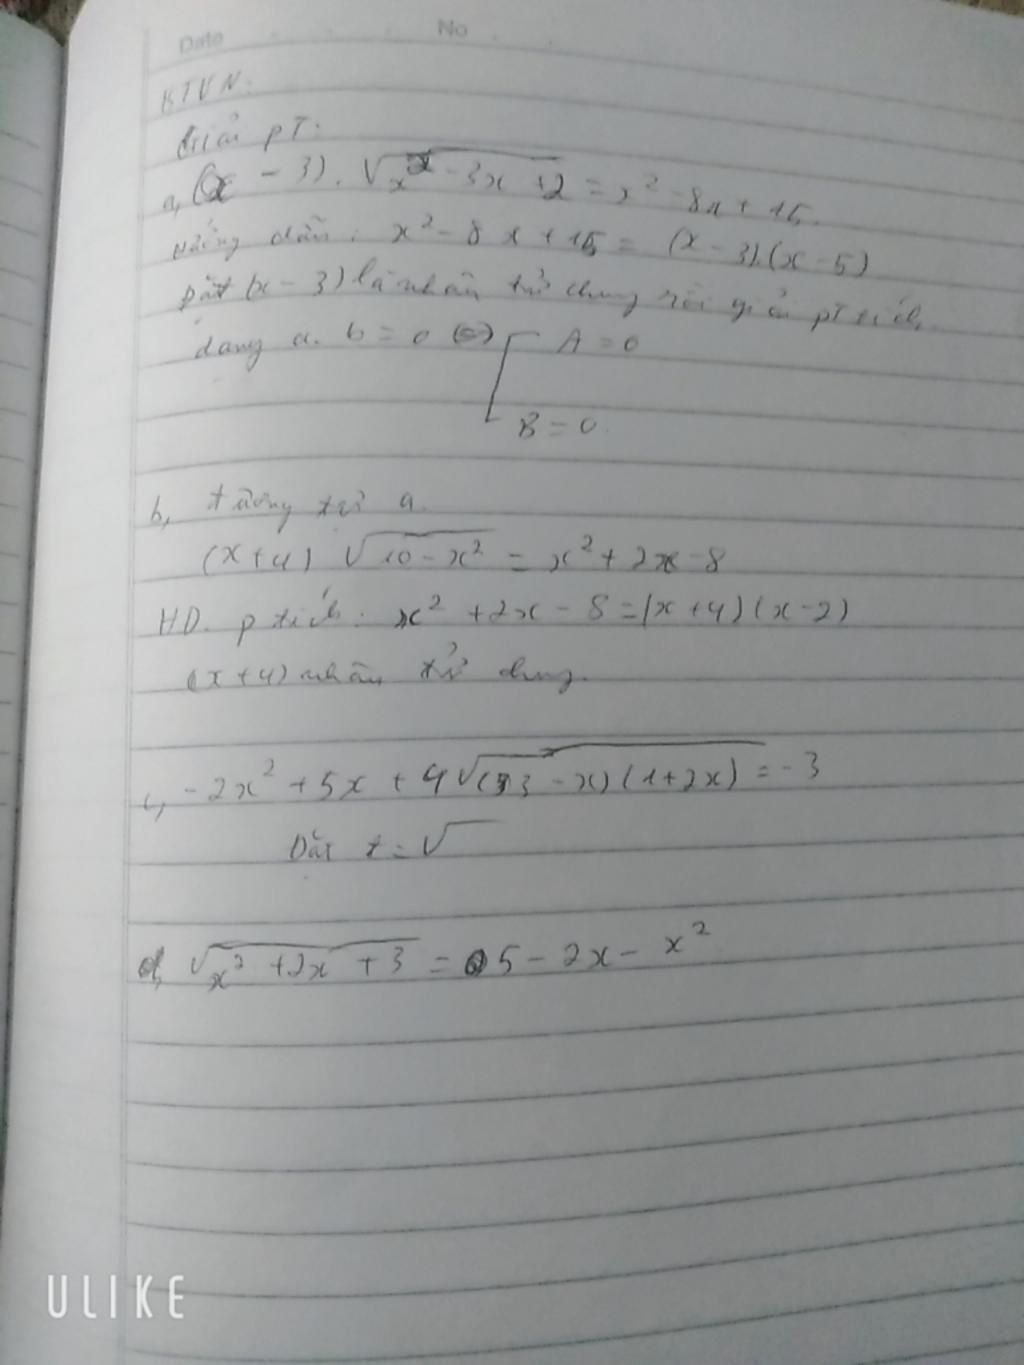 Date No
BTVN:
Giải pT:
a, (x - 3). √x² - 3x + 2 = x² - 8x + 15
Hướng dẫn: x² - 8x + 15 = (x - 3).(x - 5)
Đặt (x - 3) là nhân tử chung rồi giải pT tích
dạng a. b = 0 ⇔ [ A = 0
B = 0.
b, tương tự a.
(x + 4) √10 - x² = x² + 2x - 8
HD. p tích: x² + 2x - 8 = (x + 4)(x - 2)
(x + 4) nhân tử chung.
c, -2x² + 5x + 4√(3 - x)(1 + 2x) = -3
Đặt t = √
d, √x² + 2x + 3 = 5 - 2x - x²
ULIKE